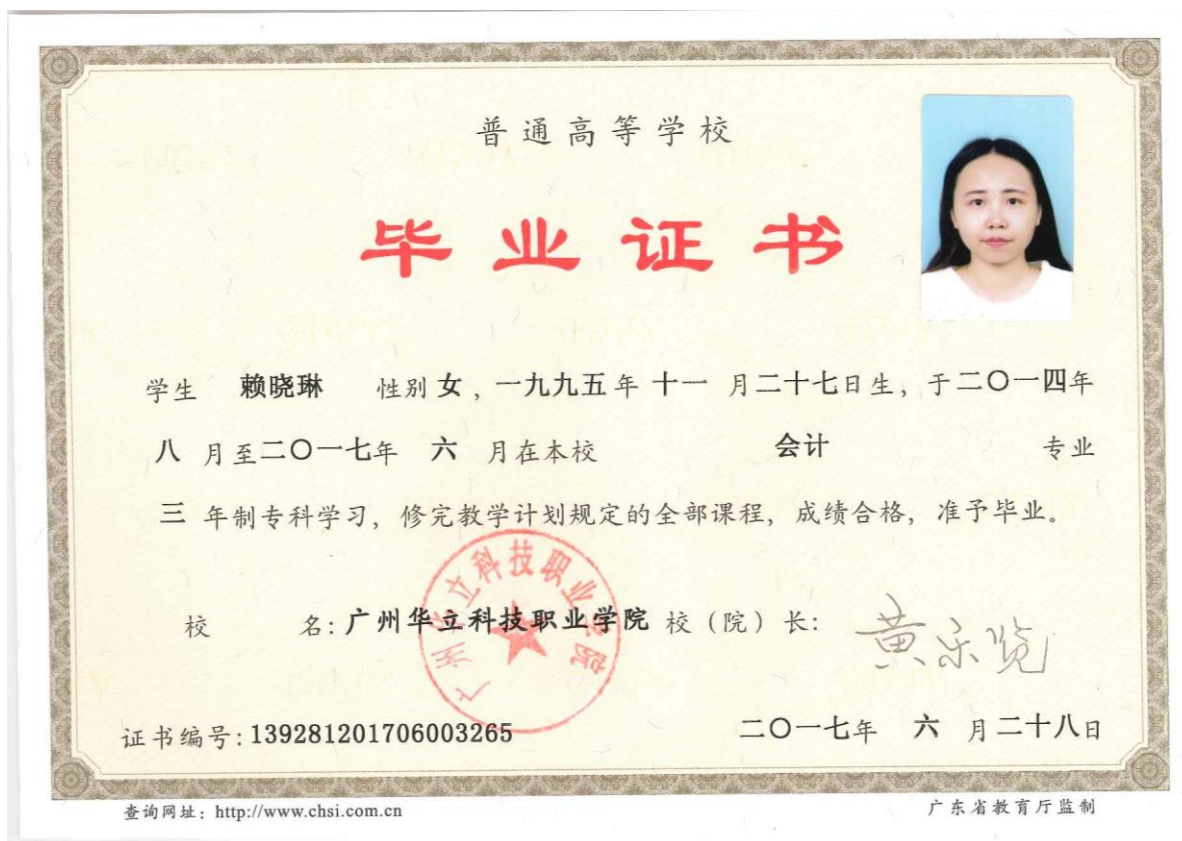 普通高等学校
毕业证书
学生 赖晓琳 性别 女 ，一九九五年 十一 月二十七日生，于二〇一四年
八 月至二〇一七年 六 月在本校 会计 专业
三 年制专科学习，修完教学计划规定的全部课程，成绩合格，准予毕业。
广州华立科技职业学院
校 名：广州华立科技职业学院 校（院）长：黄乐览
证书编号：139281201706003265 二〇一七年 六 月二十八日
查询网址：http://www.chsi.com.cn 广东省教育厅监制